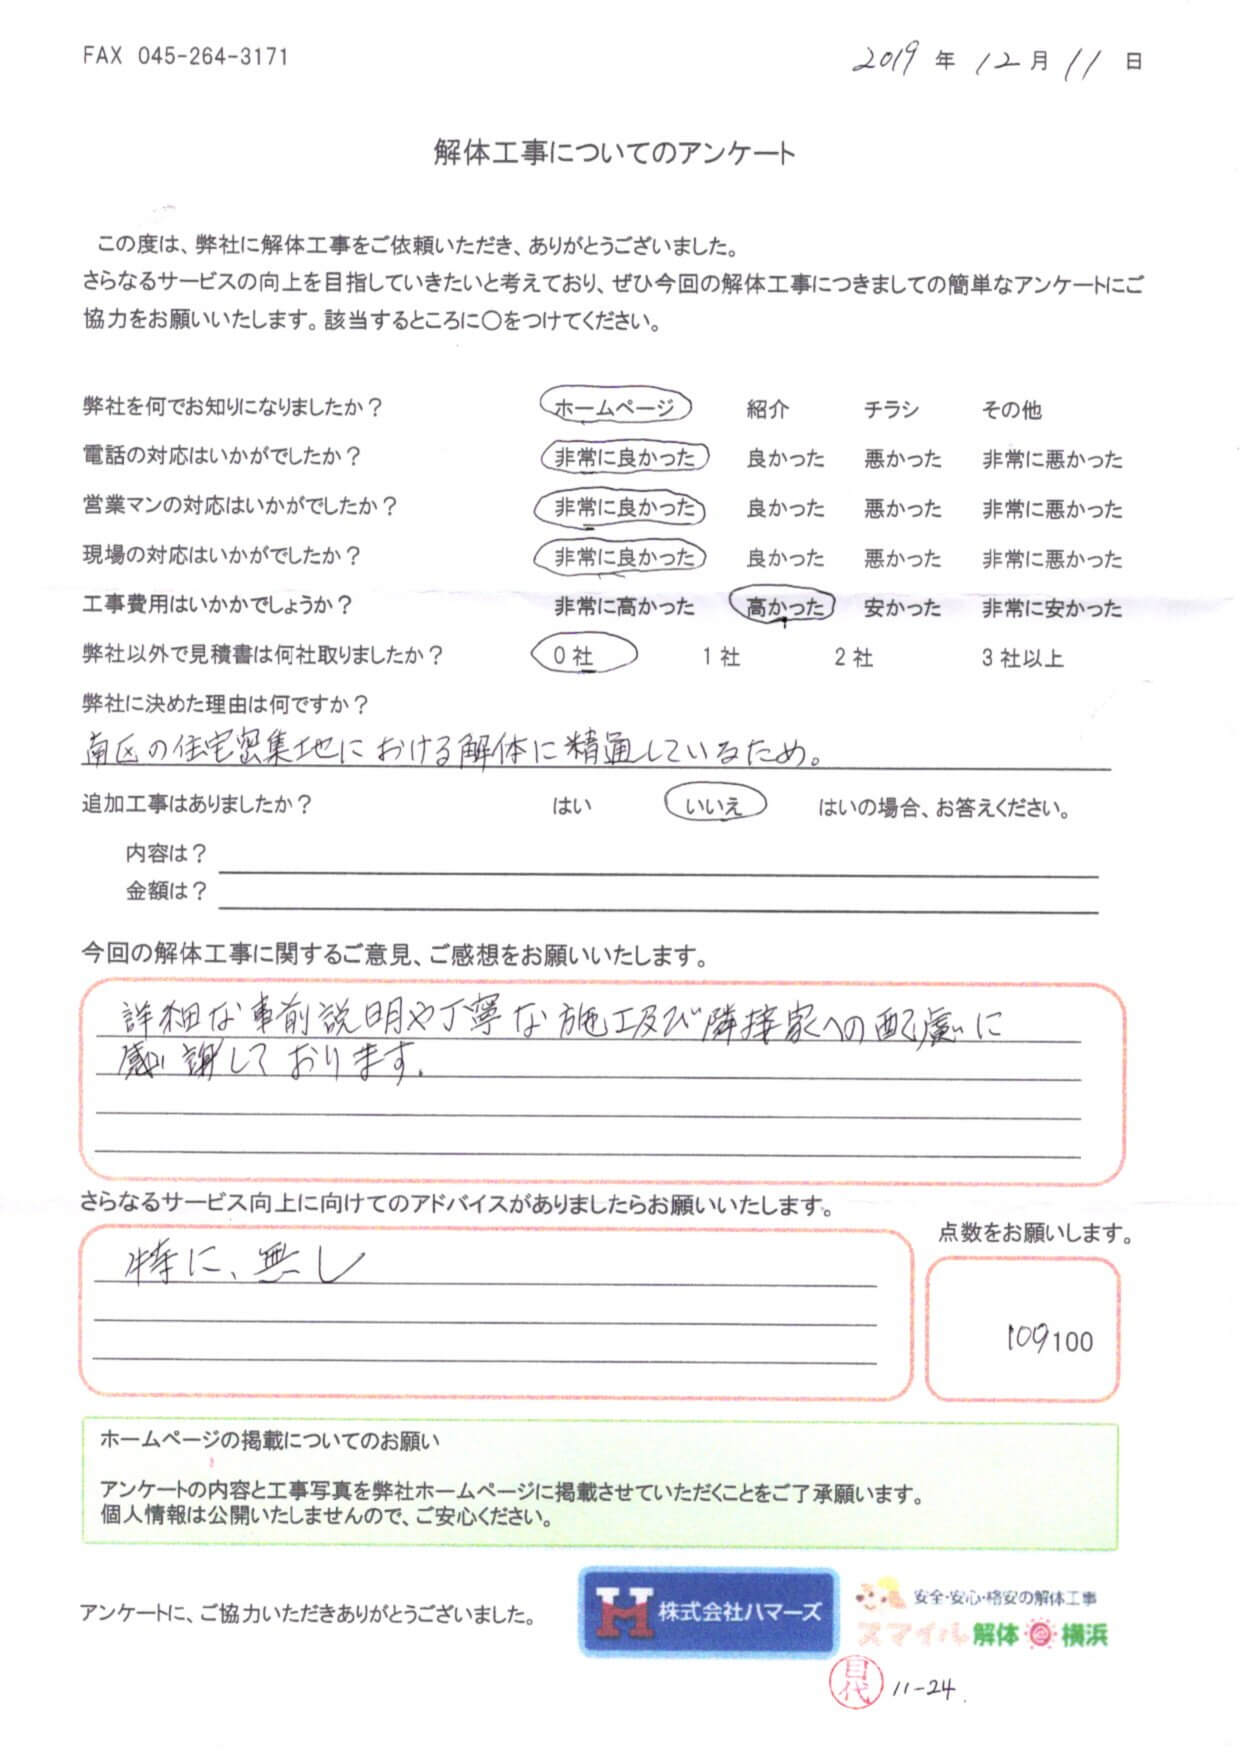 FAX 045-264-3171
2019 年 12 月 11 日
解体工事についてのアンケート
この度は、弊社に解体工事をご依頼いただき、ありがとうございました。
さらなるサービスの向上を目指していきたいと考えており、ぜひ今回の解体工事につきましての簡単なアンケートにご
協力をお願いいたします。該当するところに○をつけてください。
弊社を何でお知りになりましたか？ ホームページ 紹介 チラシ その他
電話の対応はいかがでしたか？ 非常に良かった 良かった 悪かった 非常に悪かった
営業マンの対応はいかがでしたか？ 非常に良かった 良かった 悪かった 非常に悪かった
現場の対応はいかがでしたか？ 非常に良かった 良かった 悪かった 非常に悪かった
工事費用はいかかでしょうか？ 非常に高かった 高かった 安かった 非常に安かった
弊社以外で見積書は何社取りましたか？ 0 社 1 社 2 社 3 社以上
弊社に決めた理由は何ですか？
南区の住宅密集地における解体に精通しているため。
追加工事はありましたか？ はい いいえ はいの場合、お答えください。
内容は？
金額は？
今回の解体工事に関するご意見、ご感想をお願いいたします。
詳細な事前説明や丁寧な施工及び隣接家への配慮に
感謝しております。
さらなるサービス向上に向けてのアドバイスがありましたらお願いいたします。
点数をお願いします。
特に、無し
100/100
ホームページの掲載についてのお願い
アンケートの内容と工事写真を弊社ホームページに掲載させていただくことをご了承願います。
個人情報は公開いたしませんので、ご安心ください。
アンケートに、ご協力いただきありがとうございました。
H 株式会社ハマーズ
安全・安心・格安の解体工事
スマイル解体 横浜
目代 11-24.